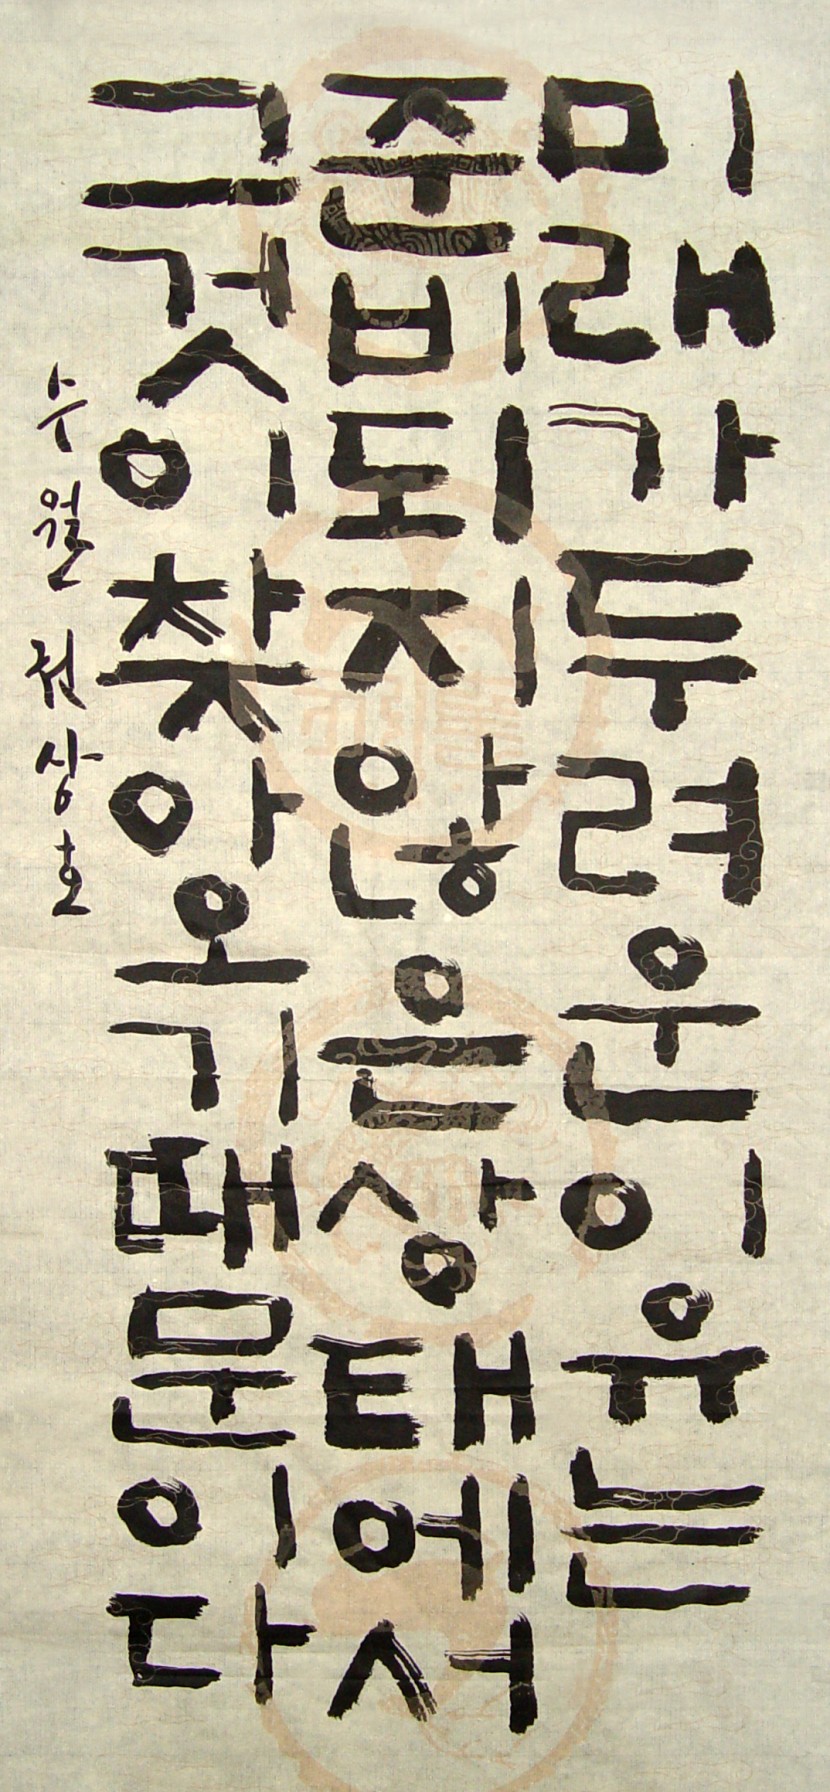 미래가두려운이유는
준비되지않은상태에서
그것이찾아오기때문이다
수월 권상호